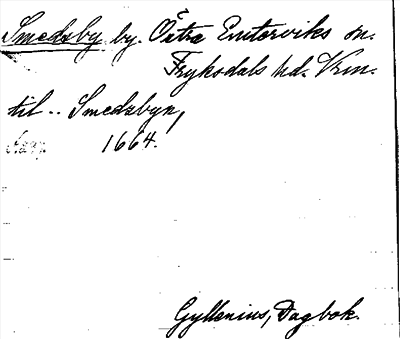 Smedsby by. Östra Emterviks sn.
Fryksdals hd. Vrm.
til .. Smedsbyn,
1664.
Gyllenius, Dagbok.